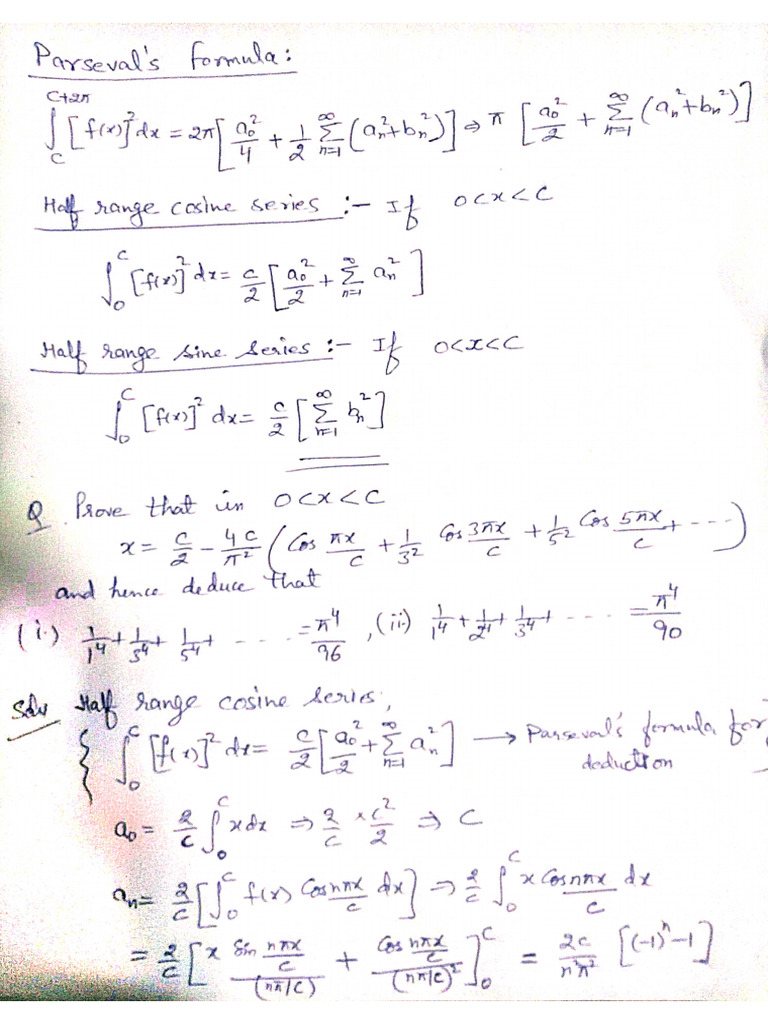 Parseval's formula:
∫_C^{C+2π} [f(x)]² dx = 2π [a₀²/4 + 1/2 Σ_{n=1}^∞ (aₙ²+bₙ²)] ⇒ π [a₀²/2 + Σ_{n=1}^∞ (aₙ²+bₙ²)]
Half range cosine series :- If 0<x<C
∫_0^C [f(x)]² dx = c/2 [a₀²/2 + Σ_{n=1}^∞ aₙ²]
Half range sine series :- If 0<x<C
∫_0^C [f(x)]² dx = c/2 [Σ_{n=1}^∞ bₙ²]
Q. Prove that in 0<x<C
x = c/2 - 4c/π² (Cos πx/c + 1/3² Cos 3πx/c + 1/5² Cos 5πx/c + ---)
and hence deduce that
(i.) 1/1⁴ + 1/3⁴ + 1/5⁴ + .... = π⁴/96, (ii) 1/1⁴ + 1/2⁴ + 1/3⁴ + .... = π⁴/90
Solu Half range cosine series,
{ ∫_0^C [f(x)]² dx = c/2 [a₀²/2 + Σ_{n=1}^∞ aₙ²] → Parseval's formula for
deduction
a₀ = 2/c ∫_0^C x dx ⇒ 2/c × c²/2 ⇒ C
aₙ = 2/c [∫_0^C f(x) Cos nπx/c dx] ⇒ 2/c ∫_0^C x Cos nπx/c dx
= 2/c [x Sin nπx/c / (nπ/c) + Cos nπx/c / (nπ/c)²]_0^C = 2c/n²π² [(-1)ⁿ-1]